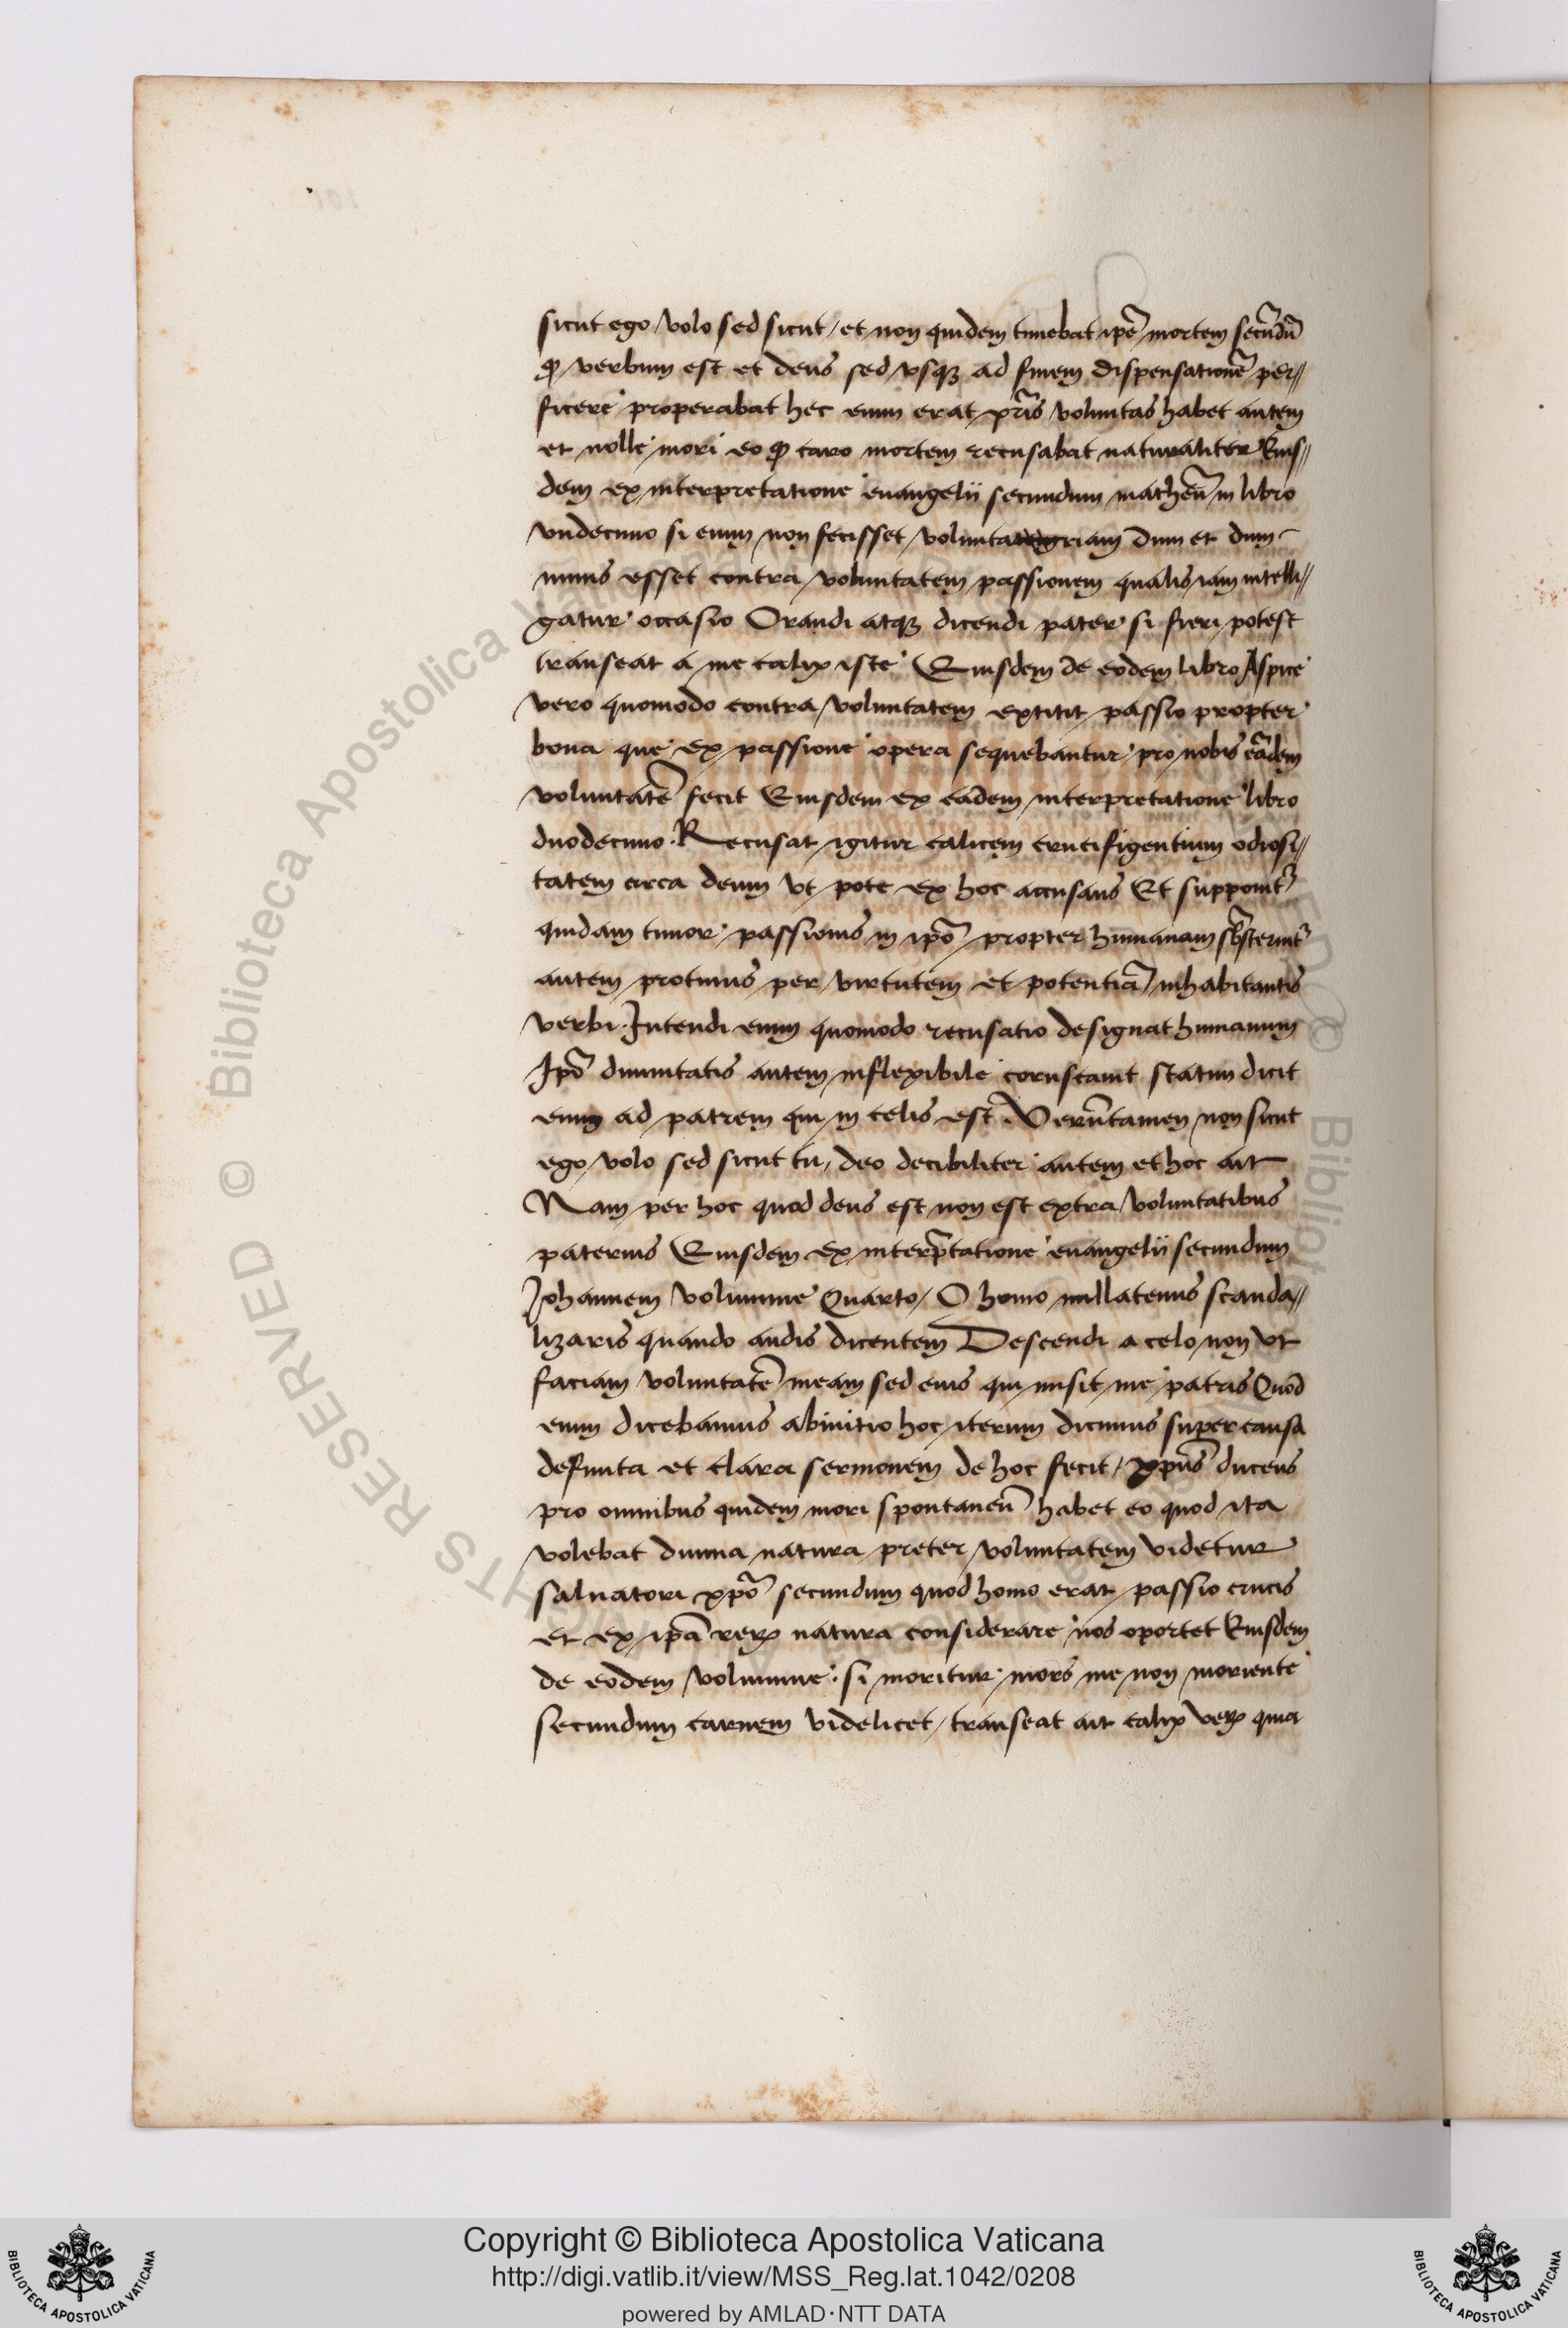 sicut ego volo sed sicut / et non quidem timebat ip̃e mortem secũdũ
ꝙ verbum est et deus sed vsqꝫ ad finem dispensationẽ per//
ficere properabat hec enim erat pr̃is voluntas habet autem
et nolle mori eo ꝙ caro mortem recusabat naturaliter Eius//
dem ex interpretatione euangelii secundum matheũ in libro
vndecimo si enim non fecisset voluntariam dum et dum
minus esset contra voluntatem passionem qualis iam intelli//
gatur occasio Orandi atqꝫ dicendi pater si fieri potest
transeat a me calix iste Eiusdem de eodem libro Aspice
vero quomodo contra voluntatem extitit passio propter
bona que ex passione opera sequebantur pro nobis eãdem
voluntatẽ fecit Eiusdem ex eadem interpretatione libro
duodecimo. Recusat igitur calicem crucifigentium odiosi//
tatem circa deum vt pote ex hoc accusans Et supponit᷑
quidam timor passionis in ip̃o propter humanam
autem protinus per virtutem et potentiã inhabitantis
verbi. Intendi enim quomodo recusatio designat humanum
Ip̃o diuinitatis autem inflexibile coruscauit statim dicit
enim ad patrem qui in celis est. Verũtamen non sicut
ego volo sed sicut tu, deo decibiliter autem et hoc ait
Nam per hoc quod deus est non est extra voluntatibus
paternis Eiusdem ex interp̃tatione euangelii secundum
Johannem volumine Quarto / O homo nullatenus scanda//
lizaris quando audis dicentem Descendi a celo non vt
faciam voluntatẽ meam sed eius qui misit me patris Quod
enim dicebamus abinitio hoc iterum dicimus super causa
defunta et clara sermonem de hoc fecit / xp̃us ducens
pro omnibus quidem mori spontaneũ habet eo quod ita
volebat diuina natura preter voluntatem videtur
saluatori xp̃o secundum quod homo erat passio crucis
et ex ip̃a reꝝ natura considerare nos oportet Eiusdem
de eodem volumine. si moritur. mors me non moriente
secundum carnem videlicet / transeat ait calix veꝝ quia
Copyright © Biblioteca Apostolica Vaticana
http://digi.vatlib.it/view/MSS_Reg.lat.1042/0208
powered by AMLAD·NTT DATA
BIBLIOTECA APOSTOLICA VATICANA
BIBLIOTECA APOSTOLICA VATICANA